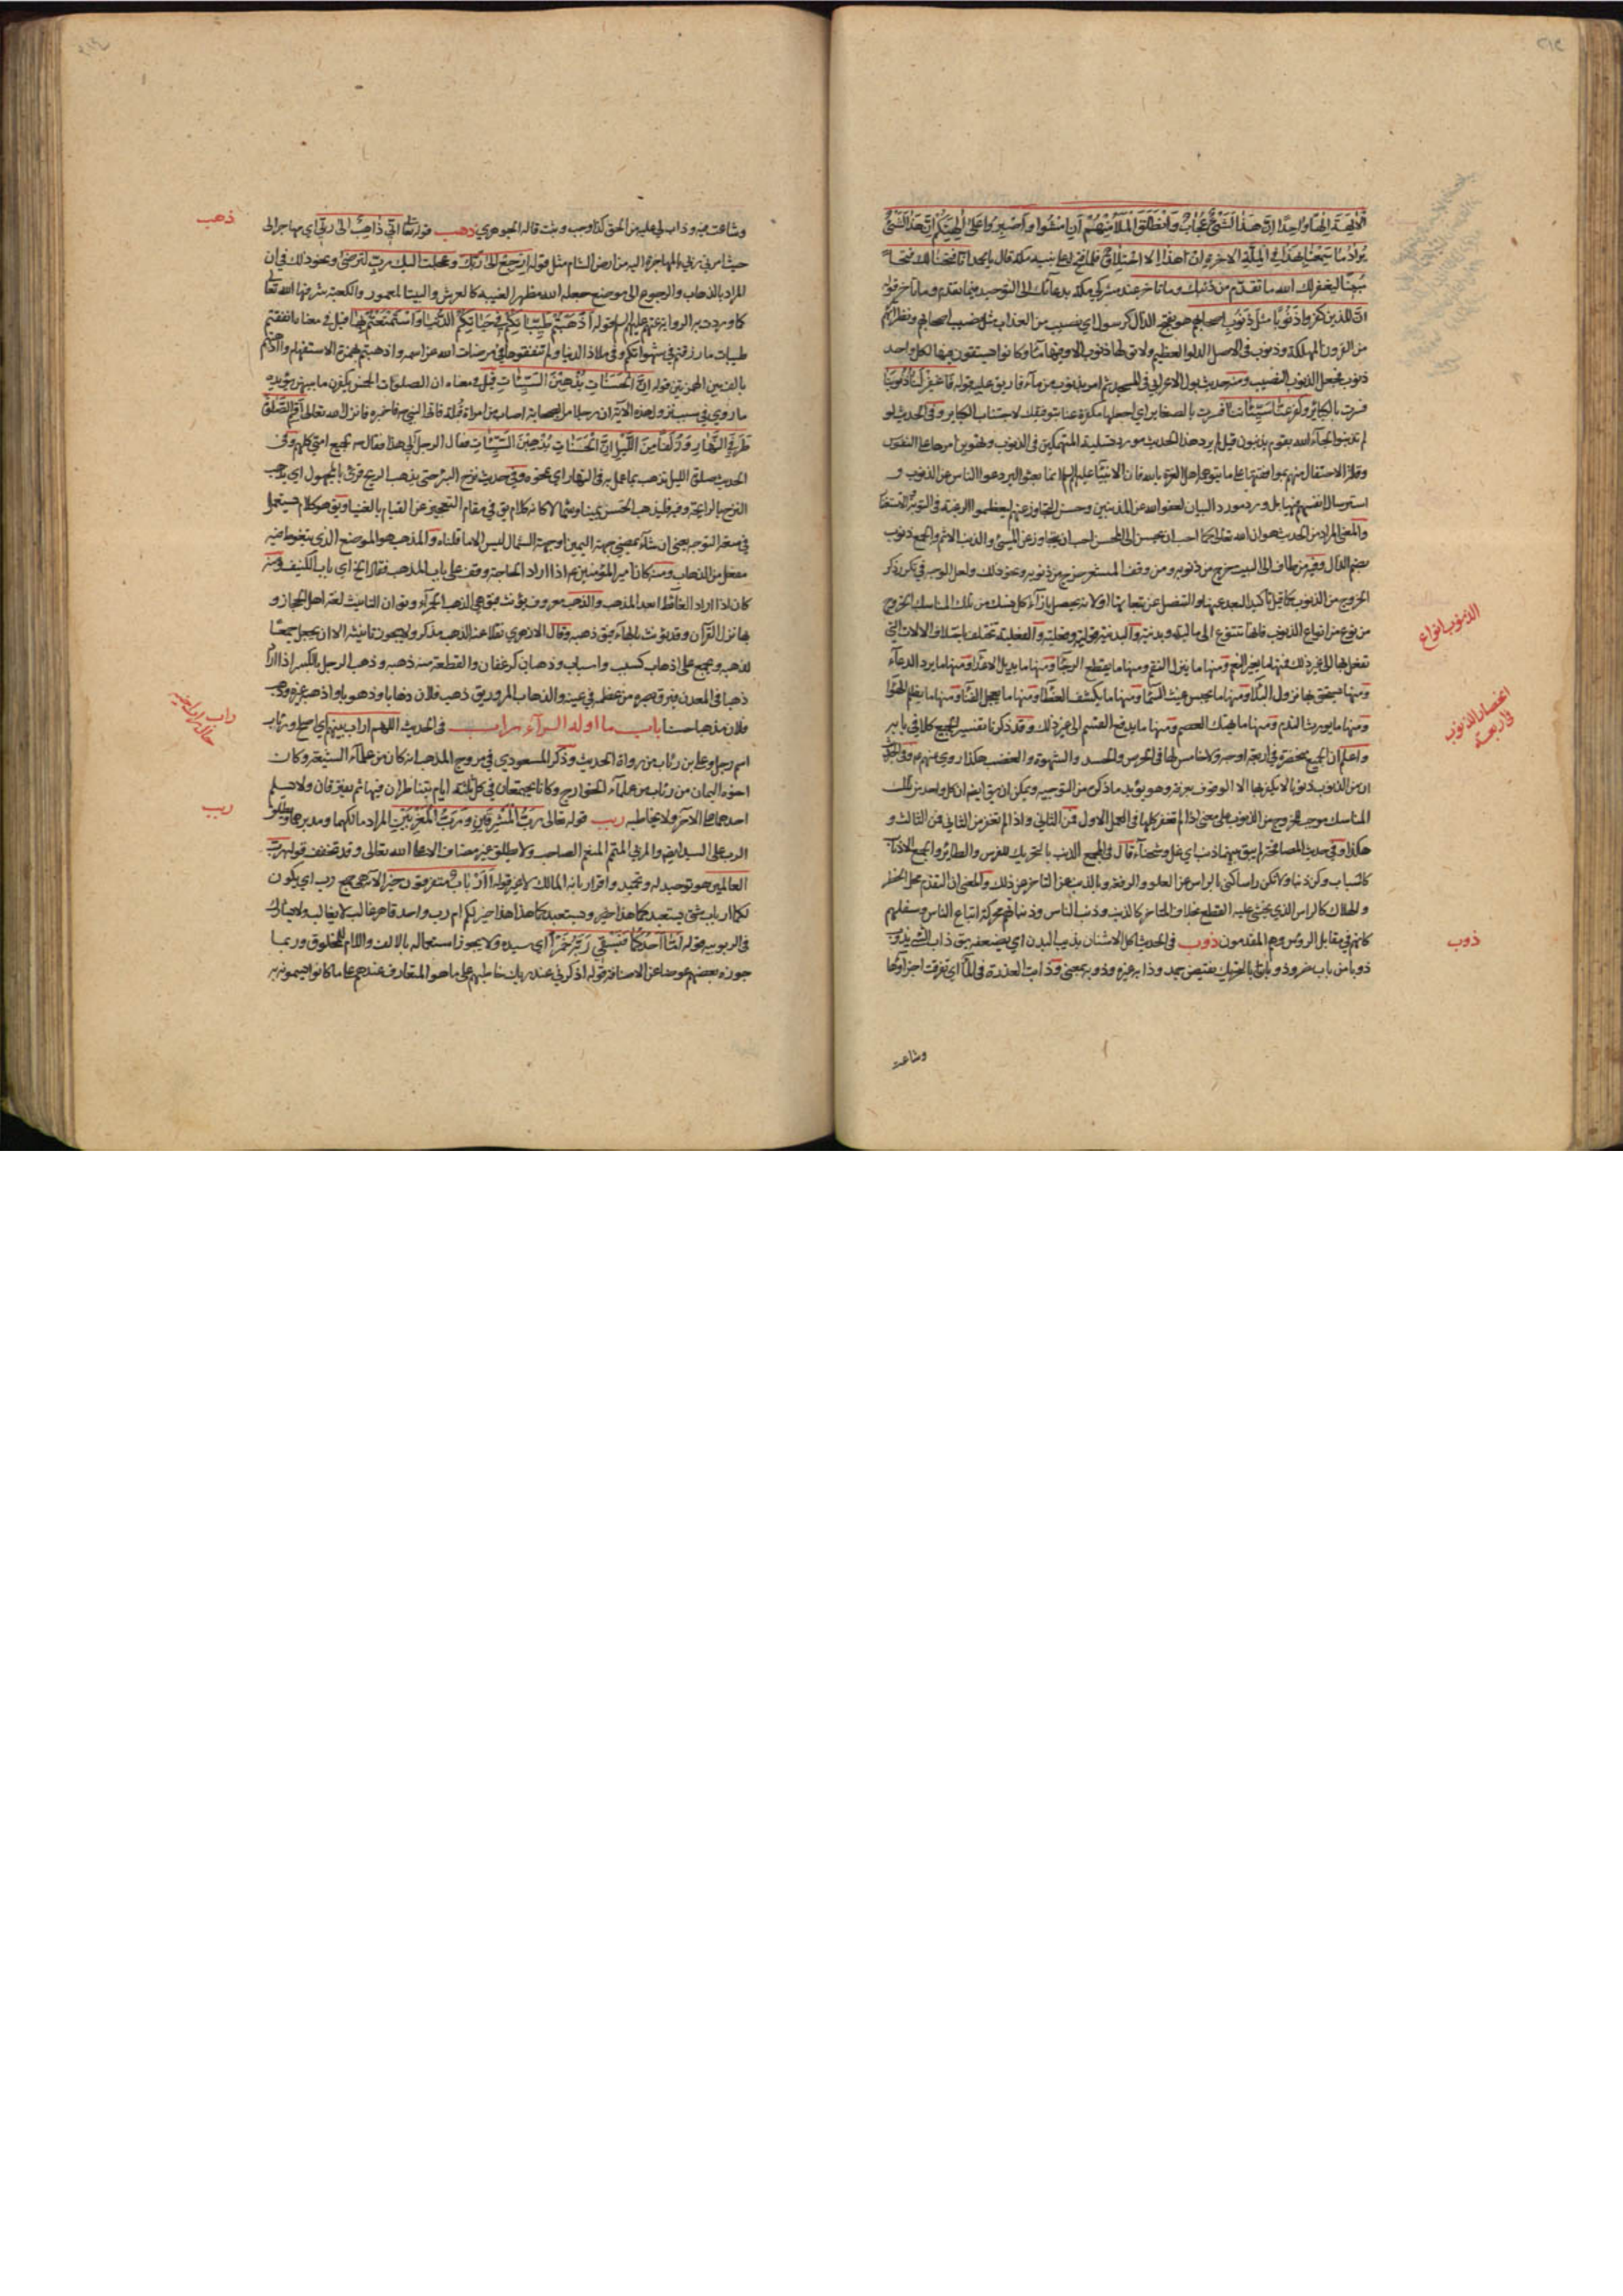 الآلهة إلها واحدا ان هذا لشيء عجاب وانطلق الملأ منهم أن امشوا واصبروا على آلهتكم ان هذا لشيء
يراد ما سمعنا بهذا في الملة الآخرة ان هذا إلا اختلاق فلما فتح الله على نبيه مكة قال يا محمد انا فتحنا لك فتحا
مبينا ليغفر لك الله ما تقدم من ذنبك وما تأخر عند مشركي مكة بدعائك الى التوحيد فيما تقدم وما تأخر قوله
ان للذين ظلموا ذنوبا مثل ذنوب اصحابهم هو بفتح الذال كرسول اي نصيب من العذاب مثل نصيب اصحابهم ونظرائهم
من القرون المهلكة وذنوب في الاصل الدلو العظيم ولا يق لها ذنوب الا وفيها ماء وكانوا يستقون فيها لكل واحد
ذنوب فجعل الذنوب النصيب ومنه حديث بول الاعرابي في المسجد ثم امر بذنوب من ماء فاريق عليه قوله فاغفر لنا ذنوبنا
فسرت بالكبائر وكفر عنا سيئاتنا فسرت بالصغاير اي اجعلها مكفرة عنا بتوفيقك لاجتناب الكبائر وفي الحديث لو
لم تذنبوا لجاء الله بقوم يذنبون قيل لم يرد هذا الحديث مورد تسلية المنهمكين في الذنوب
الانبياء عليهم السلم انما بعثوا ليردعوا الناس عن الذنوب و
استرسال انفسهم فيها بل ورد مورد البيان لعفو الله عن المذنبين وحسن التجاوز عنهم ليعظموا الرغبة في التوبة
والمعنى المراد من الحديث هو ان الله تعالى كما احب ان يحسن الى المحسن احب ان يتجاوز عن المسيء والذنب الاثم والجمع ذنوب
بضم الذال وفيه من طاف الى البيت خرج من ذنوبه ومن وقف المشعر خرج من ذنوبه ونحو ذلك ولعل الوجه في تكرر ذكر
الخروج من الذنوب
من نوع من انواع الذنوب فانها تتنوع الى مالية وبدنية والبدنية قولية وفعلية والفعلية تختلف باختلاف الالات التي
تفعل بها الى غير ذلك فمنها ما يغير النعم ومنها ما ينزل النقم ومنها ما يقطع الرجاء ومنها ما يديل الاعداء ومنها ما يرد الدعاء
ومنها ما يستحق بها نزول البلاء ومنها ما يحبس غيث السماء ومنها ما يكشف الغطاء ومنها ما يعجل الفناء ومنها ما يظلم الهواء
ومنها ما يورث الندم ومنها ما يهتك العصم ومنها ما يدفع القسم الى غير ذلك وقد ذكرنا تفسير الجميع كلا في بابه
واعلم ان الجميع منحصرة في اربعة اوجه لا خامس لها في الحرص والحسد والشهوة والغضب هكذا روي عنهم وفي الحديث
ان من الذنوب ذنوبا لا يكفرها الا الوقوف بعرفة وهو يؤيد ما ذكر من التوجيه ويمكن ان يق ايضا ان كل واحد من تلك
المناسك موجب للخروج من الذنوب على معنى اذا لم تغفر كلها في المحل الاول فمن الثاني واذا لم تغفر من الثاني فمن الثالث و
هكذا وفي حديث
كاسباب وكن ذنبا ولا تكن راسا كنى بالراس عن العلو والرفعة وبالذنب عن التاخر عن ذلك والمعنى ان التقدم محل الخطر
والهلاك كالراس الذي يخشى عليه القطع بخلاف المتاخر كالذنب وذنب الناس وذنباتهم محركة اتباع الناس وسفلتهم
كانهم في مقابل الرؤس وهم المقدمون ذوب في الحديث اكل الاشنان يذيب البدن اي يضعفه يق ذاب الشيء يذوب
ذوبا من باب
وشاعت
الذنوب انواع
انحصار الذنوب
في اربعة
ذوب
وشاعت فيه وذاب لي عليه من الحق كذا وجب وثبت قاله الجوهري ذهب قوله تعالى اني ذاهب الى ربي اي مهاجر الى
حيث امرني ربي بالمهاجرة اليه من ارض الشام مثل قوله ارجع الى ربك وعجلت اليك رب لترضى ونحو ذلك في ان
المراد بالذهاب والرجوع الى موضع جعله الله مظهرا لغيبه كالعرش والبيت المعمور والكعبة شرفها الله تعالى
كما وردت به الرواية عنهم عليهم السلم قوله اذهبتم طيباتكم في حياتكم الدنيا واستمتعتم بها قيل في معناه انفقتم
طيبات ما رزقتم في شهواتكم وفي ملاذ الدنيا ولم تنفقوها في مرضات الله عز اسمه واذهبتم بهمزة الاستفهام
بالف بين الهمزتين قوله ان الحسنات يذهبن السيئات قيل في معناه ان الصلوات الخمس يكفرن ما بينهن يؤيده
ما روي في سبب نزول هذه الآية ان رجلا من الصحابة اصاب من امراة قبلة فاتى النبي ص فاخبره فانزل الله تعالى اقم الصلوة
طرفي النهار وزلفا من الليل ان الحسنات يذهبن السيئات فقال الرجل الي هذا فقال ص لجميع امتي كلهم وفي
الحديث صلوة الليل تذهب بما عمل به في النهار اي تمحوه وفي حديث نزح البئر حتى يذهب الريح
في سعة التوجه يعني ان شاء يمضي جهة اليمين او جهة الشمال ليس الا ما قلناه والمذهب هو الموضع الذي يتغوط فيه
مفعل من الذهاب ومنه كان امير المؤمنين ع اذا اراد الحاجة وقف على باب المذهب فقال الخ اي باب الكنيف ومنه
كان اذا اراد الغائط ابعد المذهب والذهب معروف يؤنث فيق هي الذهب الحمراء ويق ان التانيث لغة اهل الحجاز و
بها نزل القرآن وقد يؤنث بالهاء فيق ذهبة وقال الازهري نقلا عنه الذهب مذكر ولا يجوز تانيثه الا ان يجعل جمعا
لذهبة ويجمع على اذهاب كسبب واسباب وذهبان كرغفان والقطعة منه ذهبة وذهب الرجل بالكسر اذا راى
ذهبا في المعدن فبرق بصره من عظمه في عينه والذهاب المرور يق ذهب فلان ذهابا وذهوبا واذهبه غيره وذهب
فلان مذهبا حسنا باب ما اوله الراء راب في الحديث اللهم اراب بينهم اي اصلح ورئاب
اسم رجل وعلي بن رئاب من رواة الحديث وذكر المسعودي في مروج المذهب انه كان من علماء الشيعة وكان
اخوه اليمان من رئاب من علماء الخوارج وكانا يجتمعان في كل سنة ثلثة ايام يتناظران فيها ثم يفترقان ولا يسلم
احدهما على الآخر ولا يخاطبه ربب قوله تعالى رب المشرقين ورب المغربين المراد مالكهما ومدبرهما ويطلق
الرب على السيد ايضا والمربي والمتمم والمنعم والصاحب ولا يطلق غير مضاف الا على الله تعالى وقد يخفف قوله رب
العالمين هو توحيد له وتحميد واقرار بانه المالك لا غير قوله أأرباب متفرقون خير الآية هي جمع رب اي يكون
لكما ارباب شتى يستعبدكما هذا ويستعبدكما هذا خير لكم ام رب واحد قاهر غالب لا يغالب ولا يشارك
في الربوبية قوله اما احدكما فيسقي ربه خمرا اي سيده ولا يجوز استعماله بالالف واللام للمخلوق وربما
جوزه بعضهم عوضا عن الاضافة قوله اذكرني عند ربك خاطبهم على ما هو المتعارف عندهم على ما كانوا يسمونهم به
ذهب
ربب